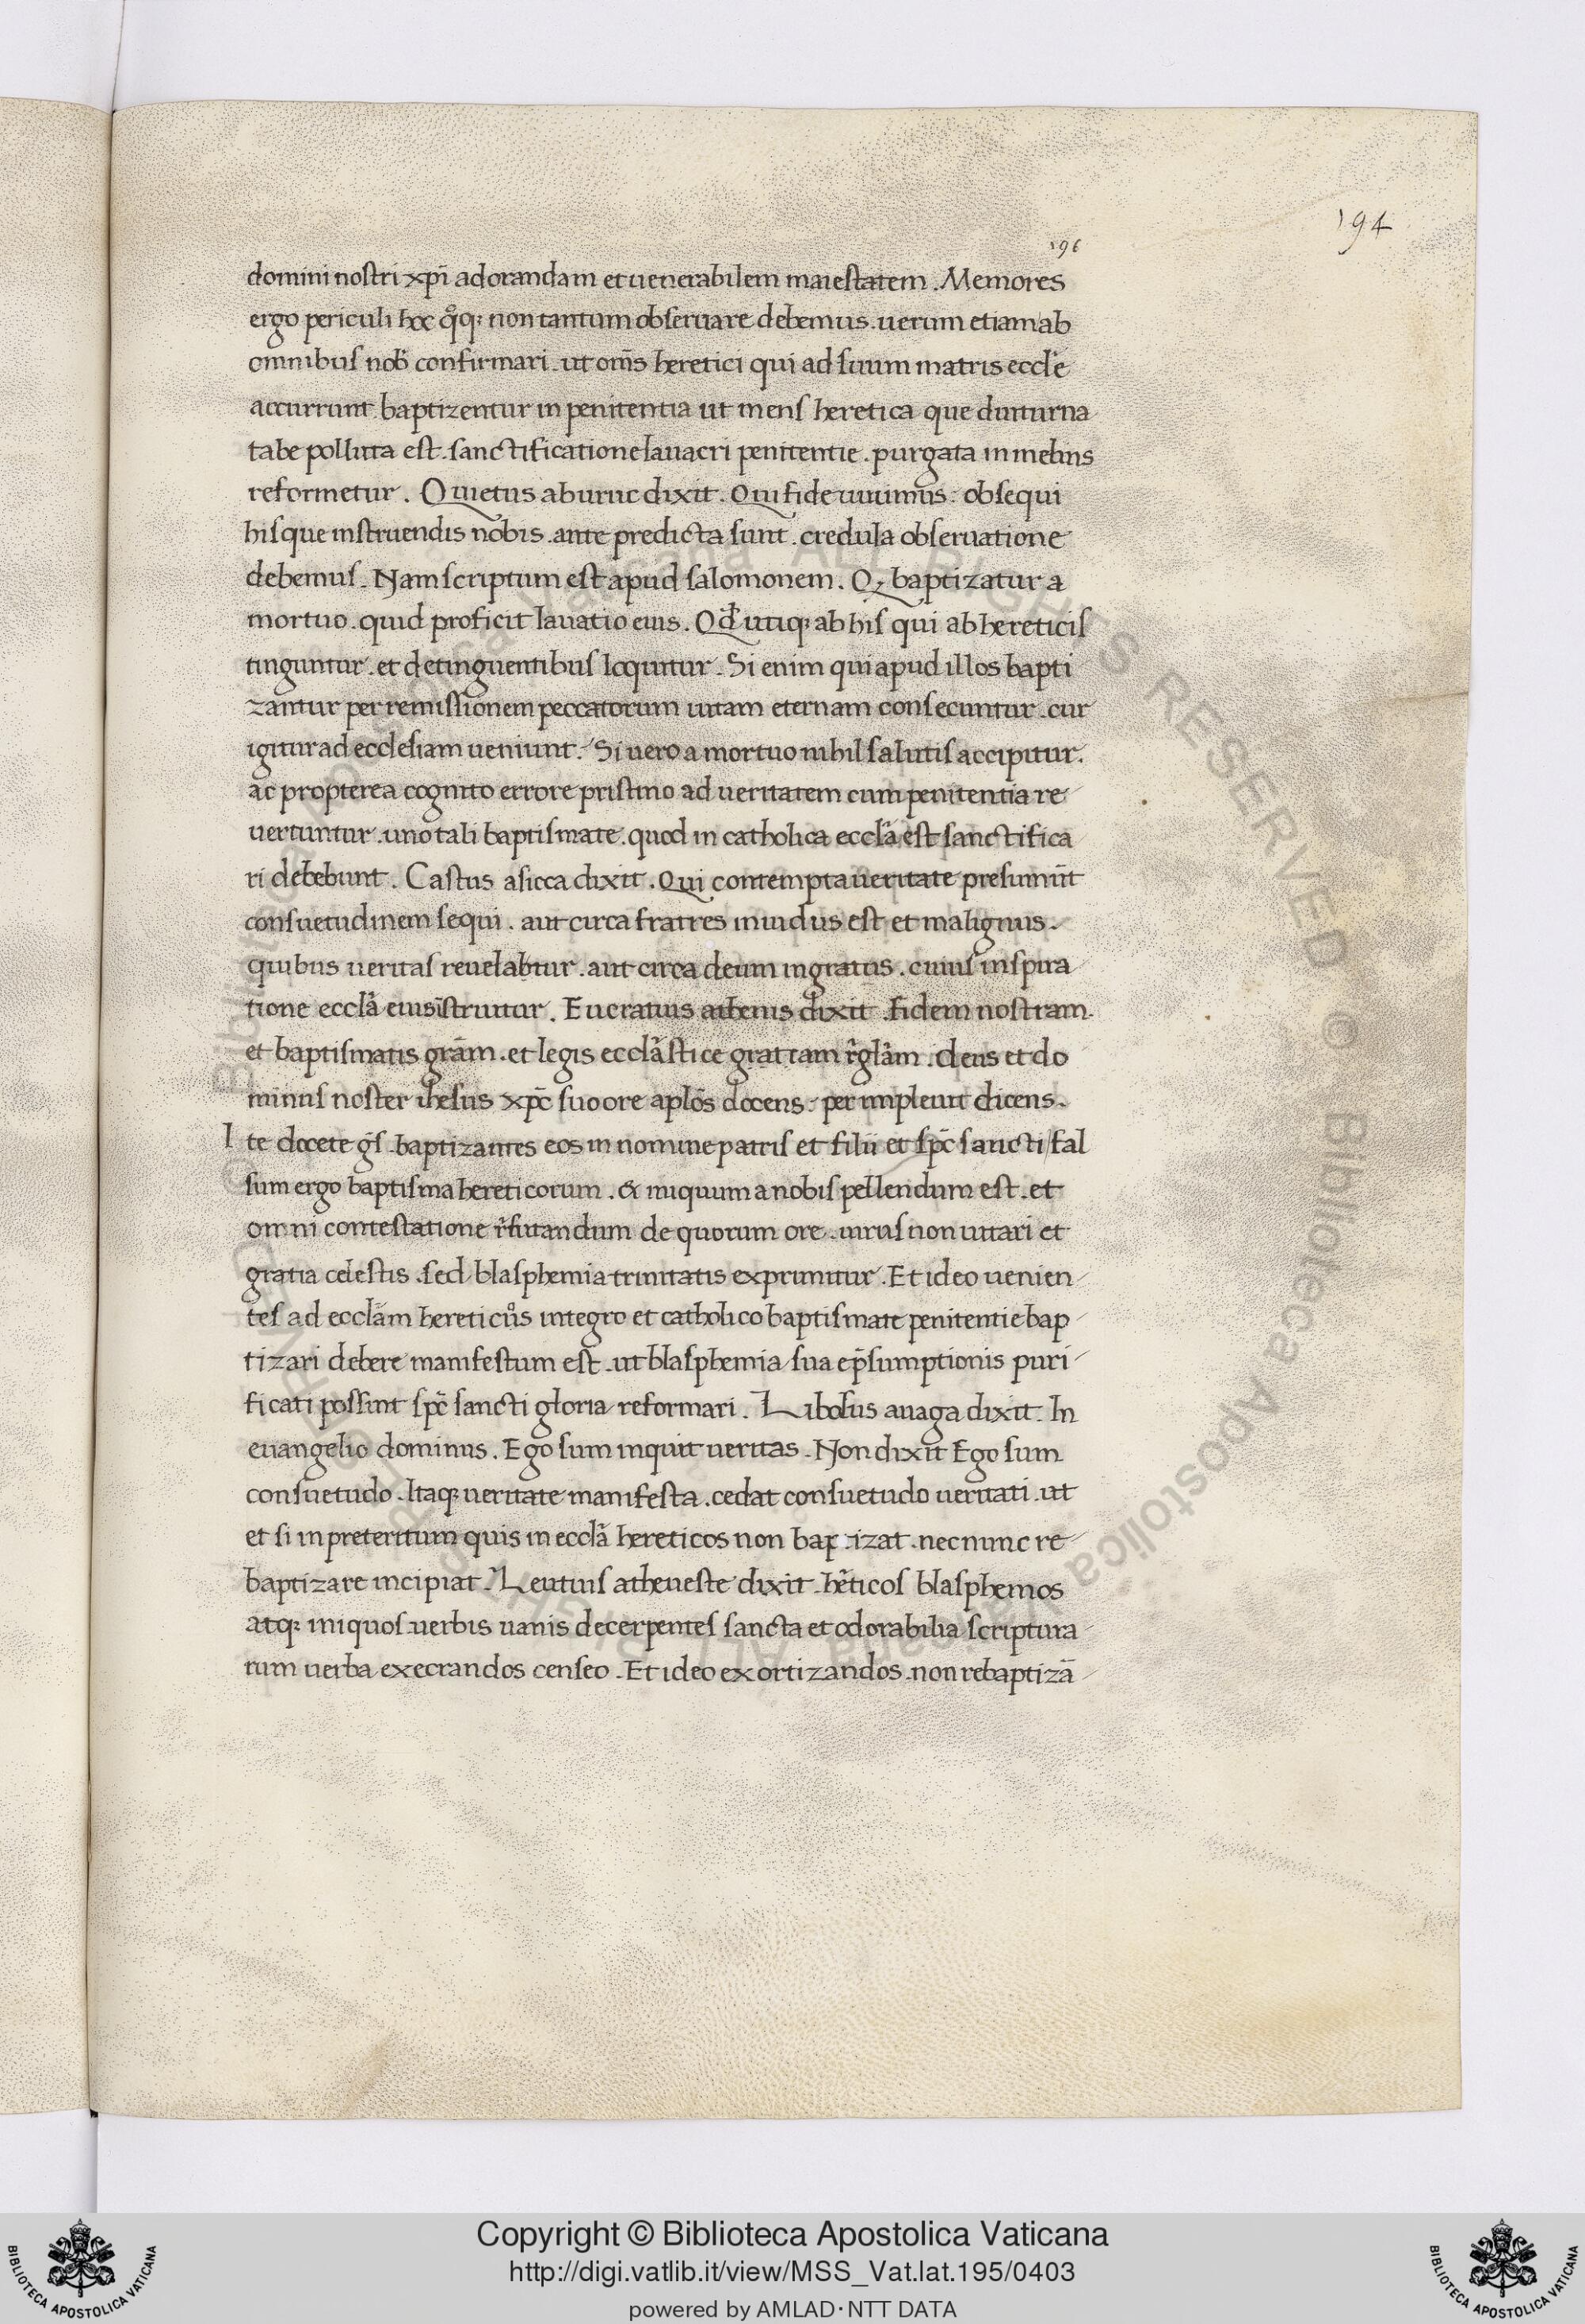 194
196
domini nostri xpī adorandam et uenerabilem maiestatem. Memores
ergo periculi hoc qͦq; non tantum obseruare debemus. uerum etiam ab
omnibus nob̄ confirmari. ut om̄s heretici qui ad suum matris eccl̄e
accurrunt baptizentur in penitentia ut mens heretica que diuturna
tabe polluta est. sanctificatione lauacri penitentie. purgata in melius
reformetur. Quietus aburuc dixit. Qui fide uiuimus. obsequi
hisque instruendis nobis. ante predicta sunt. credula obseruatione
debemus. Nam scriptum est apud salomonem. Q; baptizatur a
mortuo. quid proficit lauatio eius. Qd̄ utiq; ab his qui ab hereticis
tinguntur. et de tinguentibus loquitur. Si enim qui apud illos bapti
zantur per remissionem peccatorum uitam eternam consecuntur. cur
igitur ad ecclesiam ueniunt. Si uero a mortuo nihil salutis accipitur.
ac propterea cognito errore pristino ad ueritatem cum penitentia re
uertuntur. uno tali baptismate. quod in catholica eccl̄a est sanctifica
ri debebunt. Castus asicca dixit. Qui contempta ueritate presumūt
consuetudinem sequi. aut circa fratres inuidus est et malignus.
quibus ueritas reuelabtur. aut circa deum ingratus. cuius inspira
tione eccl̄a eius īstruitur. Eucratius athenis dixit. fidem nostram
et baptismatis grām. et legis eccl̄astice gratiam r̄gl̄am. deus et do
minus noster ihesus xpc̄ suo ore apl̄os docens. per impleuit dicens.
Ite docete gs̄. baptizantes eos in nomine patris et filii et spc̄ sancti/fal
sum ergo baptisma hereticorum. & iniquum a nobis pellendum est. et
omni contestatione r̄futandum de quorum ore. uirus non uitari et
gratia celestis. sed blasphemia trinitatis exprimitur. Et ideo uenien
tes ad eccl̄am hereticuͦs integro et catholico baptismate penitentie bap
tizari debere manifestum est. ut blasphemia sua ep̄sumptionis puri
ficati possint spc̄ sancti gloria reformari. Libolus auaga dixit. In
euangelio dominus. Ego sum inquit ueritas. Non dixit Ego sum
consuetudo. Itaq; ueritate manifesta. cedat consuetudo ueritati. ut
et si in preteritum quis in eccl̄a hereticos non baptizat. nec nunc re
baptizare incipiat. Leutius atheueste dixit. hēticos blasphemos
atq; iniquos uerbis uanis decerpentes sancta et odorabilia scriptura
rum uerba execrandos censeo. Et ideo exortizandos. non rebaptizā
Copyright © Biblioteca Apostolica Vaticana
http://digi.vatlib.it/view/MSS_Vat.lat.195/0403
powered by AMLAD·NTT DATA
BIBLIOTECA APOSTOLICA VATICANA
BIBLIOTECA APOSTOLICA VATICANA